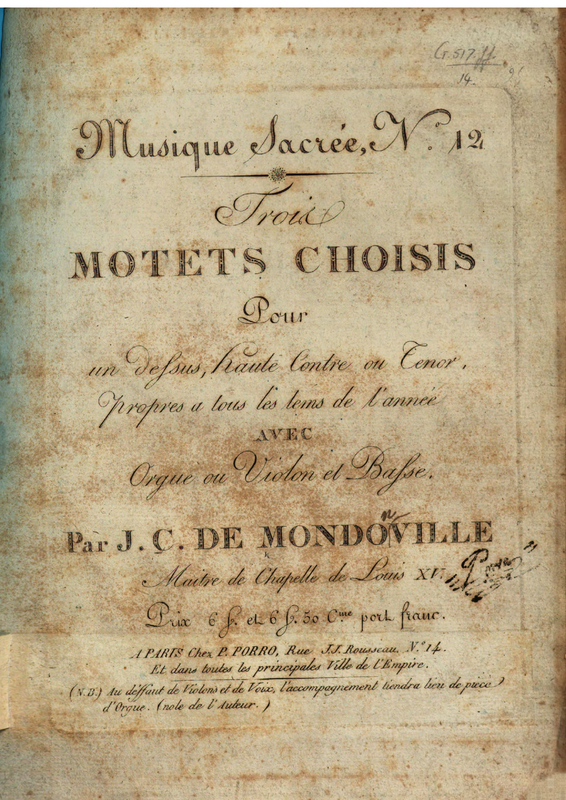 G. 517.ff.
14.
Musique Sacrée, N.º 12
Trois
MOTETS CHOISIS
Pour
un deſsus, haute Contre ou Tenor,
Propres a tous les tems de l'année
AVEC
Orgue ou Violon et Baſse.
n
Par J. C. DE MONDOVILLE
Maitre de Chapelle de Louis XV.
Prix 6 f. et 6 f. 50 C.me port franc.
A PARIS Chez P. PORRO, Rue J.J. Rousseau, N.º 14.
Et dans toutes les principales Ville de l'Empire.
(N.B.) Au deffaut de Violons et de Voix, l'accompagnement tiendra lieu de piece
d'Orgue. (note de l'Auteur.)